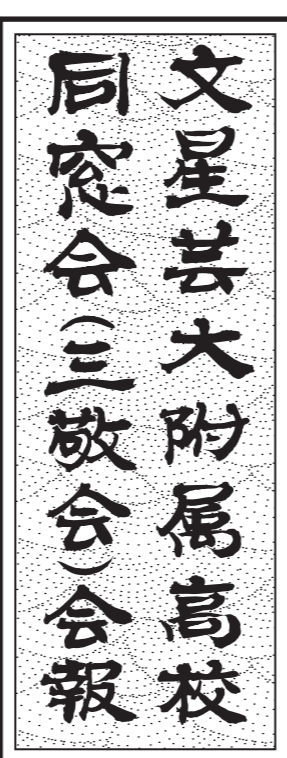 文星芸大附属高校
同窓会(三敬会)会報